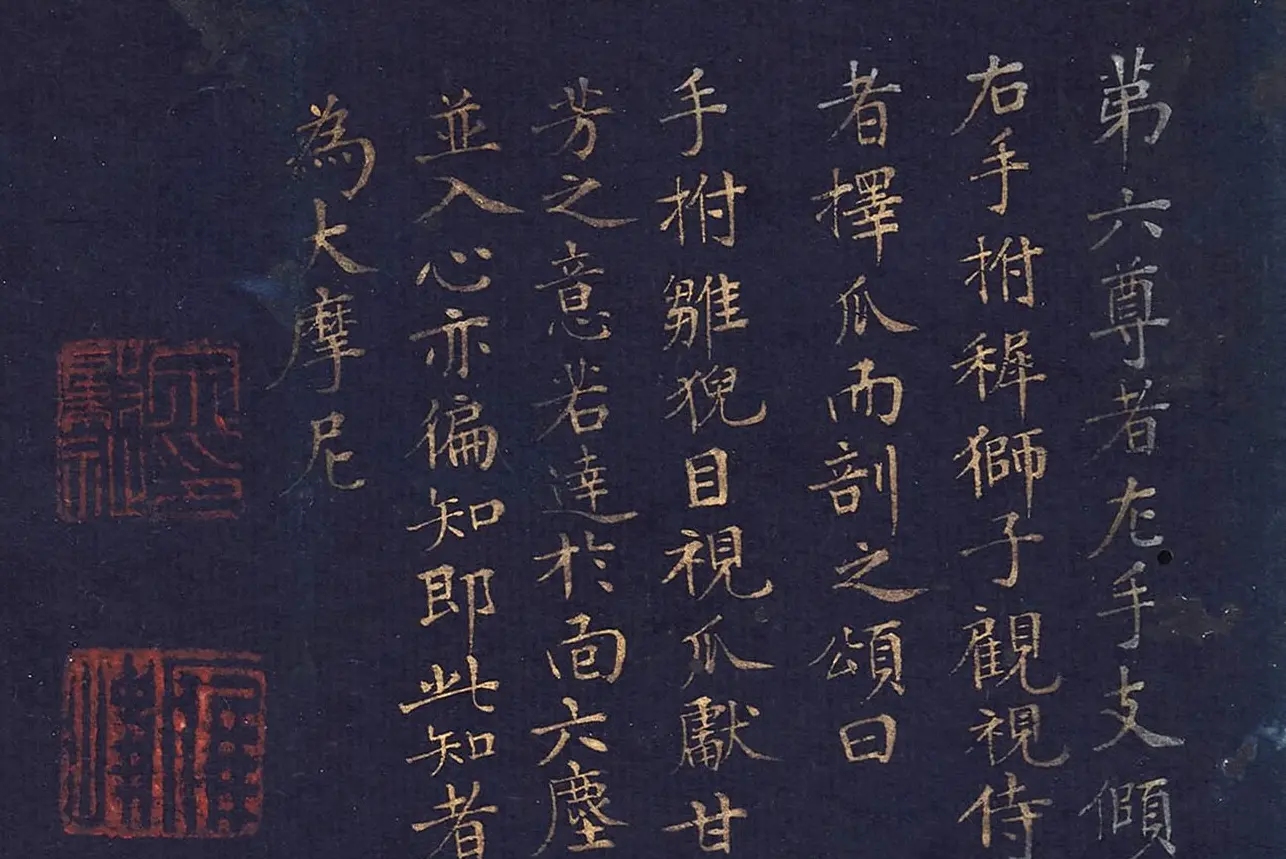 弟六尊者左手支傾
右手拊稺獅子觀視侍
者擇瓜而剖之頌曰
手拊雛猊目視瓜獻甘
芳之意若達於面六塵
並入心亦偏知即此知者
為大摩尼